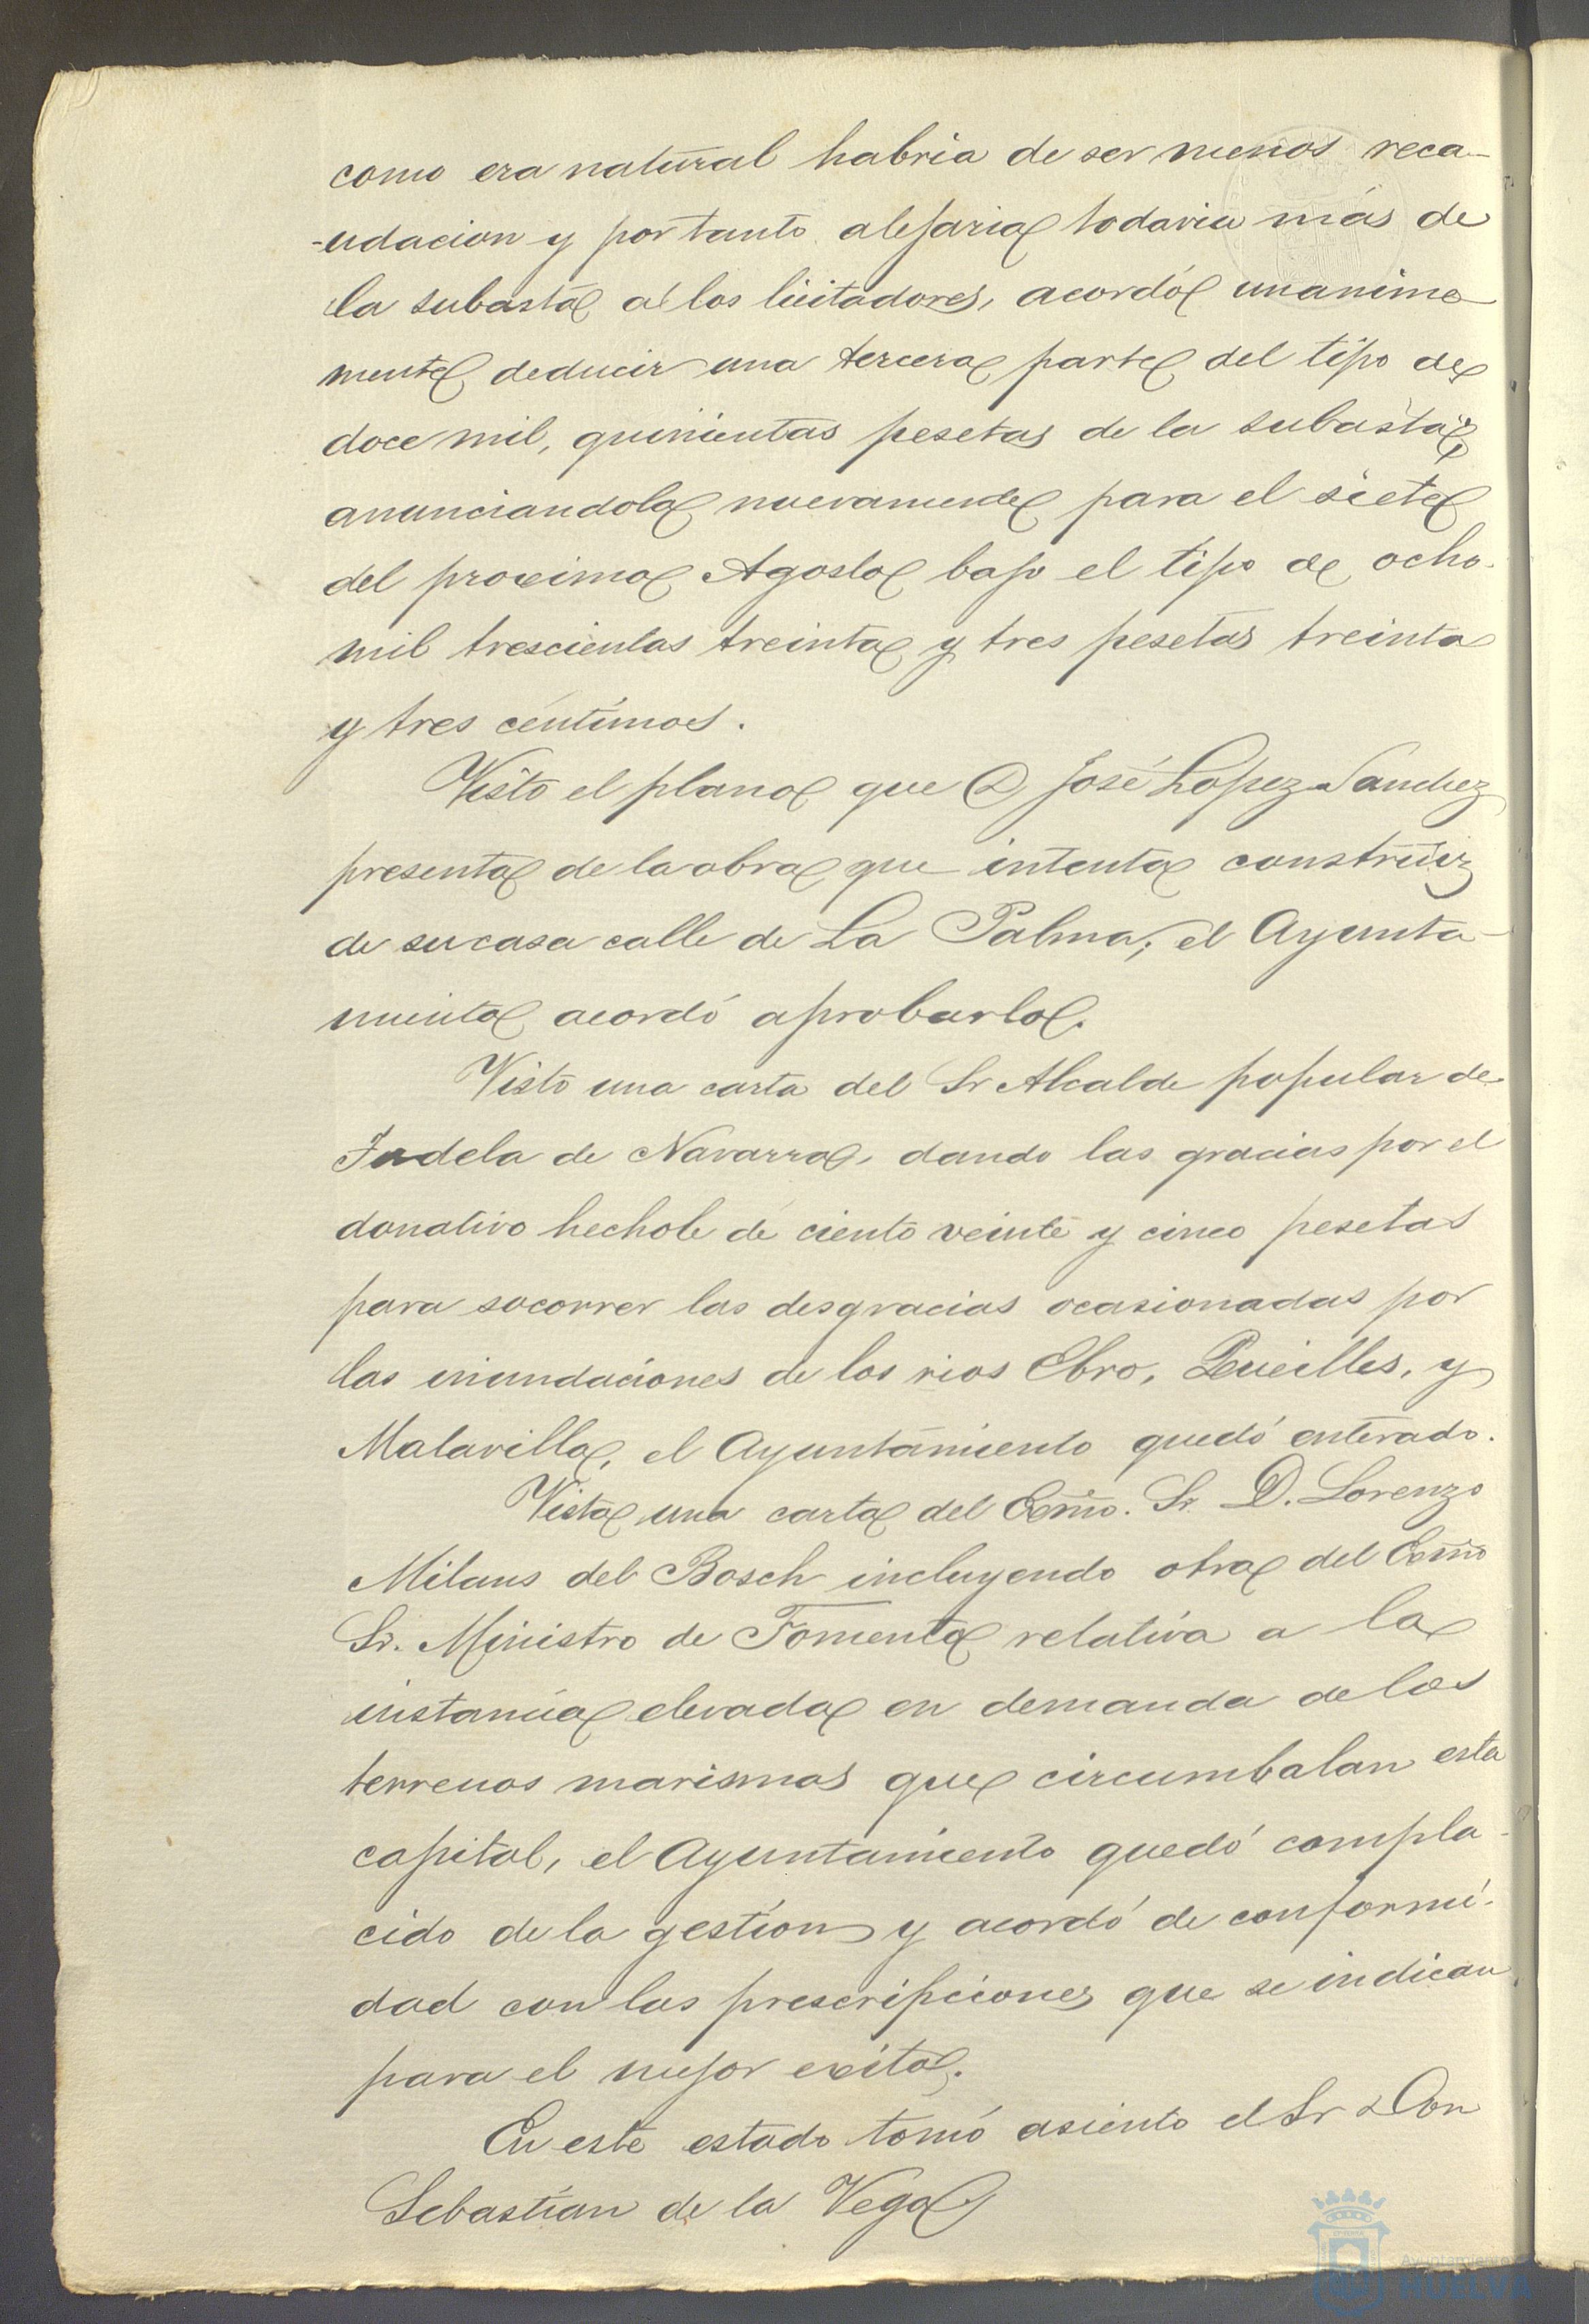 como era natural habria de ser menos reca-
-udacion y por tanto alejaria todavia más de
la subasta a los licitadores, acordó unanime
mente deducir una tercera parte del tipo de
doce mil, quinientas pesetas de la subasta,
anunciandola nuevamente para el siete
del proximo Agosto bajo el tipo de ocho
mil trescientas treinta y tres pesetas treinta
y tres centimos.
Visto el plano que D José Lopez Sanchez
presenta de la obra que intenta construir
de su casa calle de La Palma; el Ayunta-
miento acordó aprobarlo.
Visto una carta del Sr Alcalde popular de
Tudela de Navarra, dando las gracias por el
donativo hechole de ciento veinte y cinco pesetas
para socorrer las desgracias ocasionadas por
las inundaciones de los rios Ebro, Queilles, y
Malavilla, el Ayuntamiento quedó enterado.
Vista una carta del Excmo. Sr. D. Lorenzo
Milans del Bosch incluyendo otra del Excmo
Sr. Ministro de Fomento relativa a la
instancia elevada en demanda de los
terrenos marismas que circumbalan esta
capital, el Ayuntamiento quedó compla-
cido de la gestion y acordó de conformi-
dad con las prescripciones que se indican
para el mejor exito.
En este estado tomó asiento el Sr Don
Sebastian de la Vega
Ayuntamiento
HUELVA